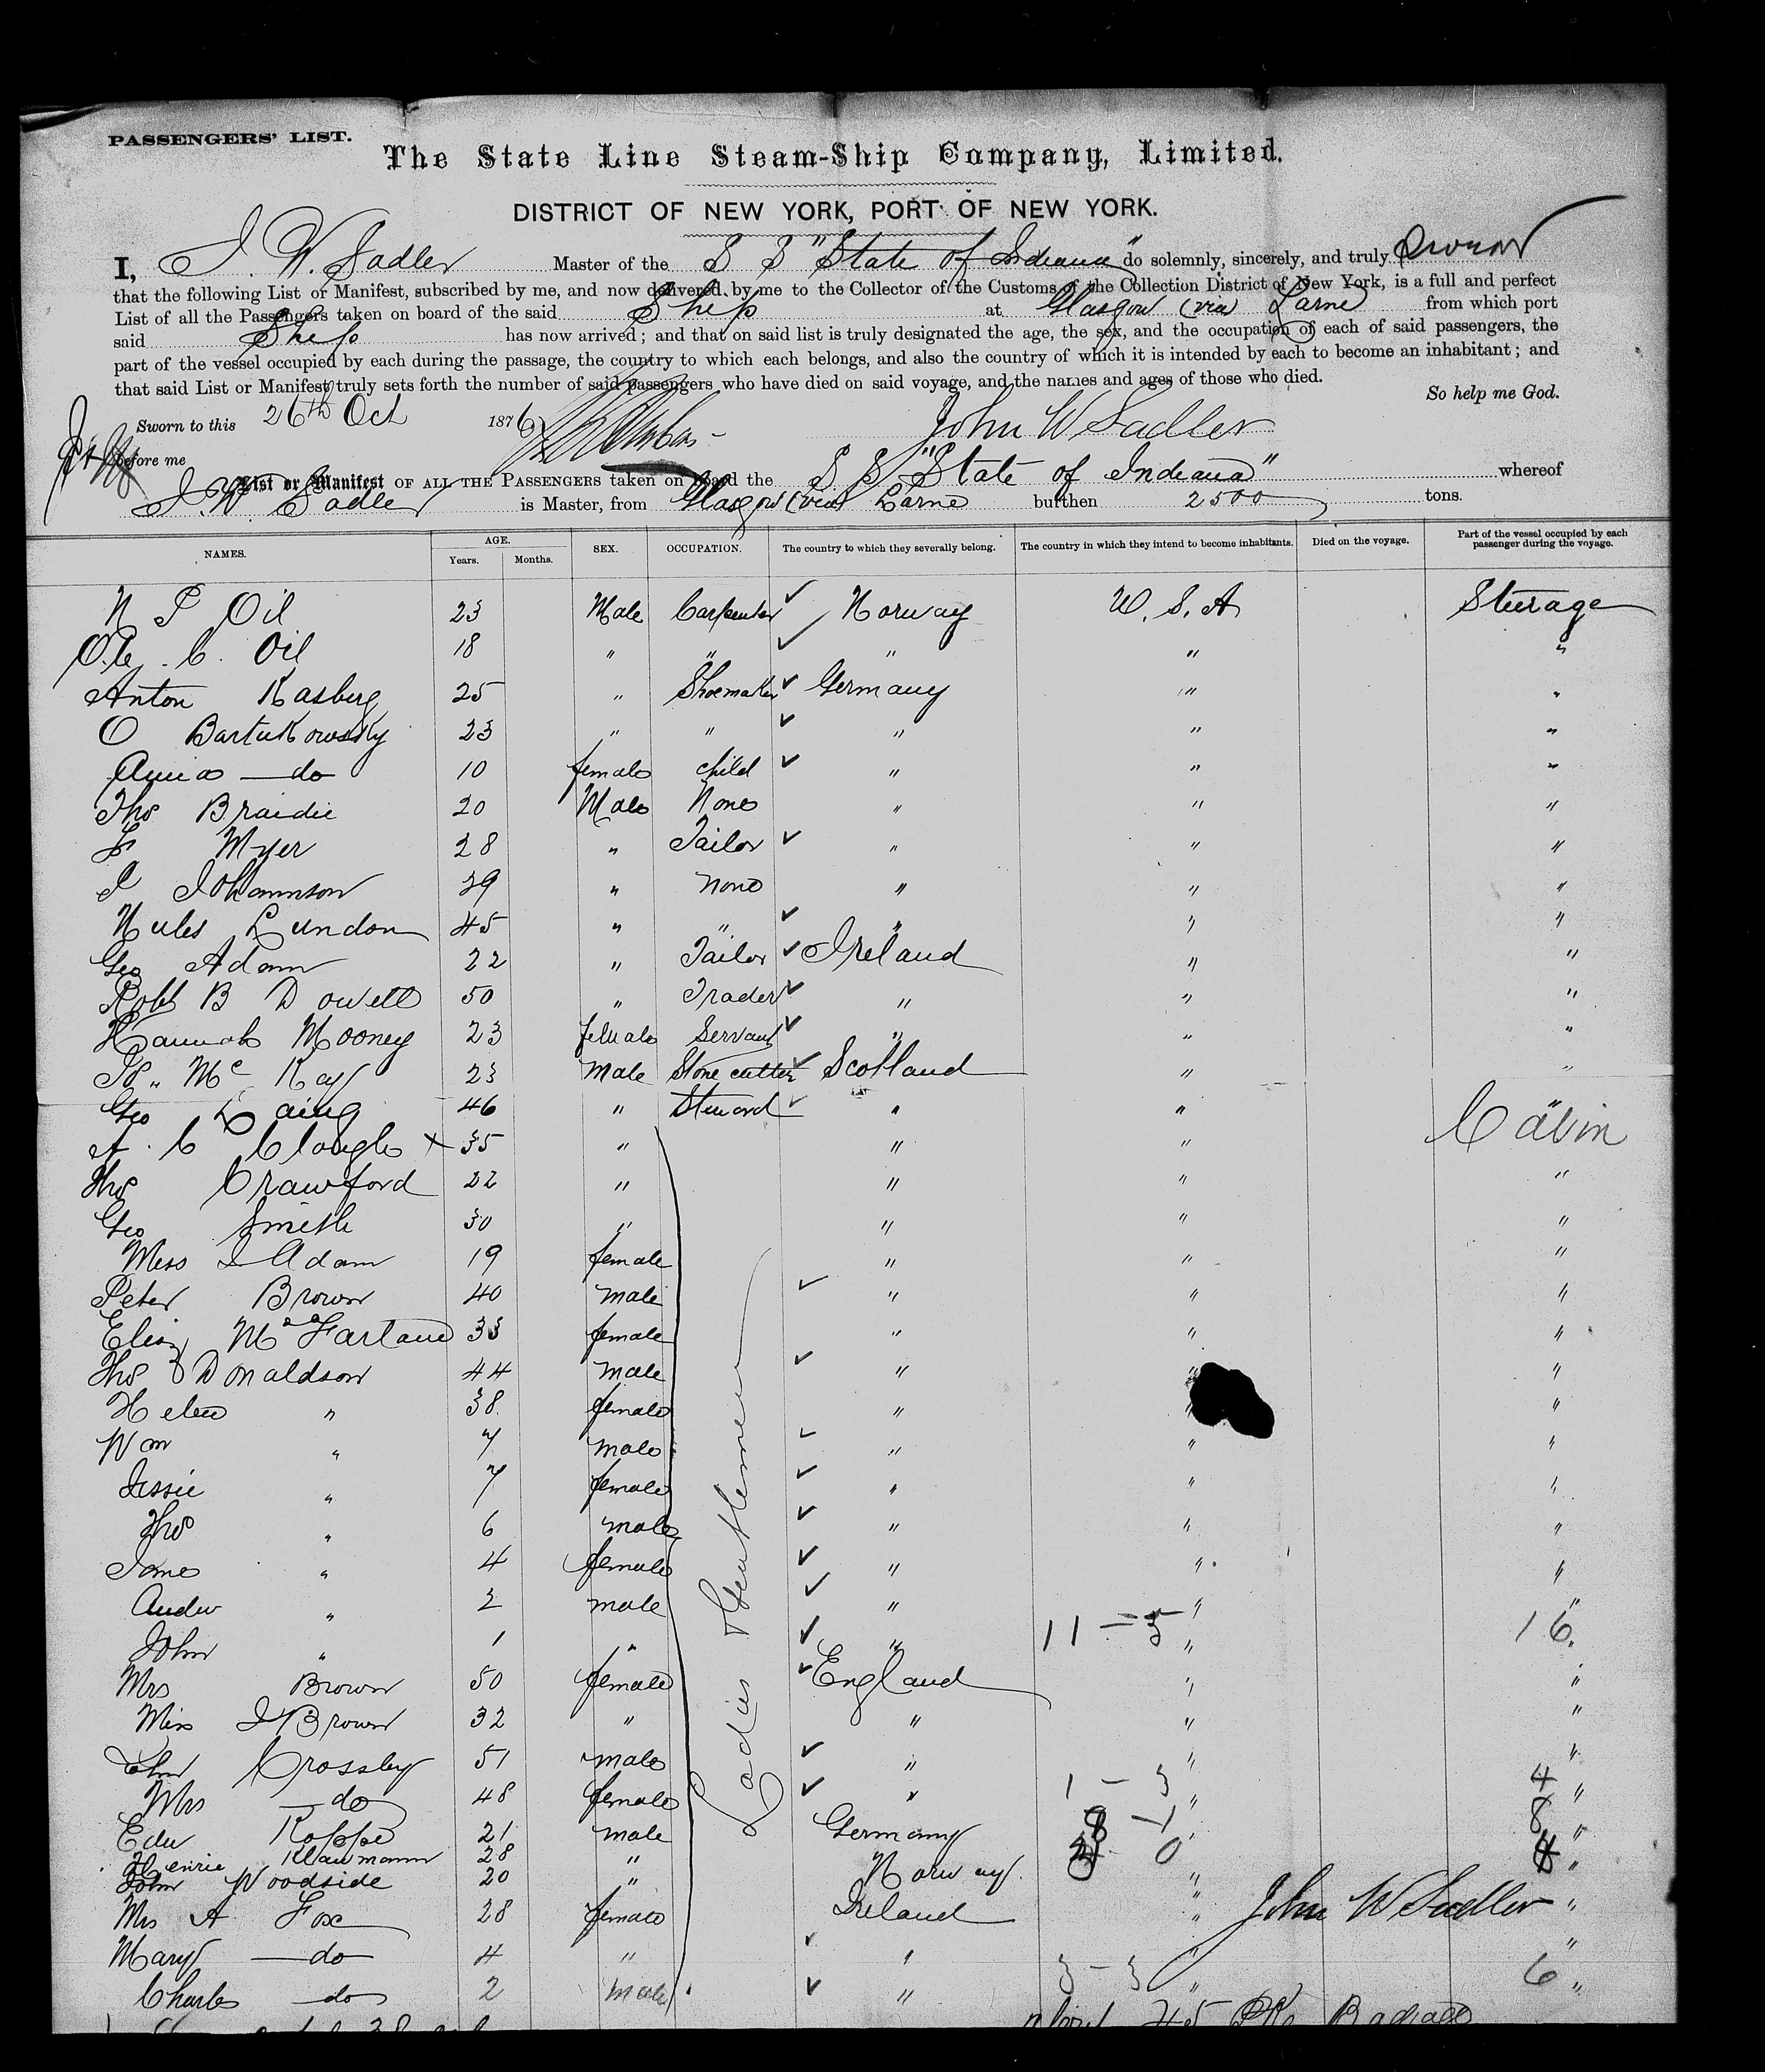 PASSENGERS' LIST.
The State Line Steam-Ship Company, Limited.
DISTRICT OF NEW YORK, PORT OF NEW YORK.
I, J. W. Sadler Master of the S S "State of Indiana" do solemnly, sincerely, and truly swear
that the following List or Manifest, subscribed by me, and now delivered by me to the Collector of the Customs of the Collection District of New York, is a full and perfect
List of all the Passengers taken on board of the said Ship at Glasgow (via Larne from which port
said Ship has now arrived; and that on said list is truly designated the age, the sex, and the occupation of each of said passengers, the
part of the vessel occupied by each during the passage, the country to which each belongs, and also the country of which it is intended by each to become an inhabitant; and
that said List or Manifest truly sets forth the number of said passengers who have died on said voyage, and the names and ages of those who died.
So help me God.
Sworn to this 26th Oct 1876 John W Sadler
before me
List or Manifest OF ALL THE PASSENGERS taken on board the S S "State of Indiana" whereof
J. W. Sadler is Master, from Glasgow (via Larne burthen 2500 tons.
NAMES. AGE. Years. Months. SEX. OCCUPATION. The country to which they severally belong. The country in which they intend to become inhabitants. Died on the voyage. Part of the vessel occupied by each passenger during the voyage.
N P Oil 23 Male Carpenter Norway U.S.A Steerage
C. Oil 18 " " " " "
Anton Kasberg 25 " Shoemaker Germany " "
O 23 " " " " "
do 10 female child " " "
Thos Braidie 20 Male None " " "
Myer 28 " Tailor " " "
Johannson 39 " none " " "
Lundon 45 " " " " "
Geo Adam 22 " Tailor Ireland " "
Robt B Dowell 50 " Trader " " "
Hannah Mooney 23 female Servant " " "
Mc Kay 23 Male Stone cutter Scotland " "
Geo Laing 46 " Steward " " "
A. C Clough x 35 " " " Cabin
Thos Crawford 22 " " " "
Geo Smith 30 " " " "
Miss J Adam 19 female " " "
Peter Brown 40 male " " "
Eliza McFarland 33 female " " "
Thos Donaldson 44 male " " "
Helen " 38 female " " "
Wm " 7 male " " "
Jessie " 7 female " " "
Thos " 6 male " " "
" 4 female " " "
Andw " 2 male " " "
John " 1 " " 11 - 5 " 16 "
Mrs Brown 50 female England " "
Miss J Brown 32 " " " "
Crossley 51 male " " "
Mrs do 48 female " 1 - 3 " 4 "
Edw Koppe 21 male Germany " 8 "
Henrie 28 " Norway 0 "
John Woodside 20 " "
Mrs A Fox 28 female Ireland " John W Sadler "
Mary do 4 " " " "
Charles do 2 male " 3 - 3 " 6 "
Ladies & Gentlemen